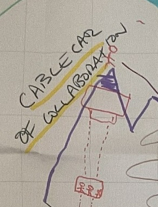 CABLECAR
OF COLLABORATION